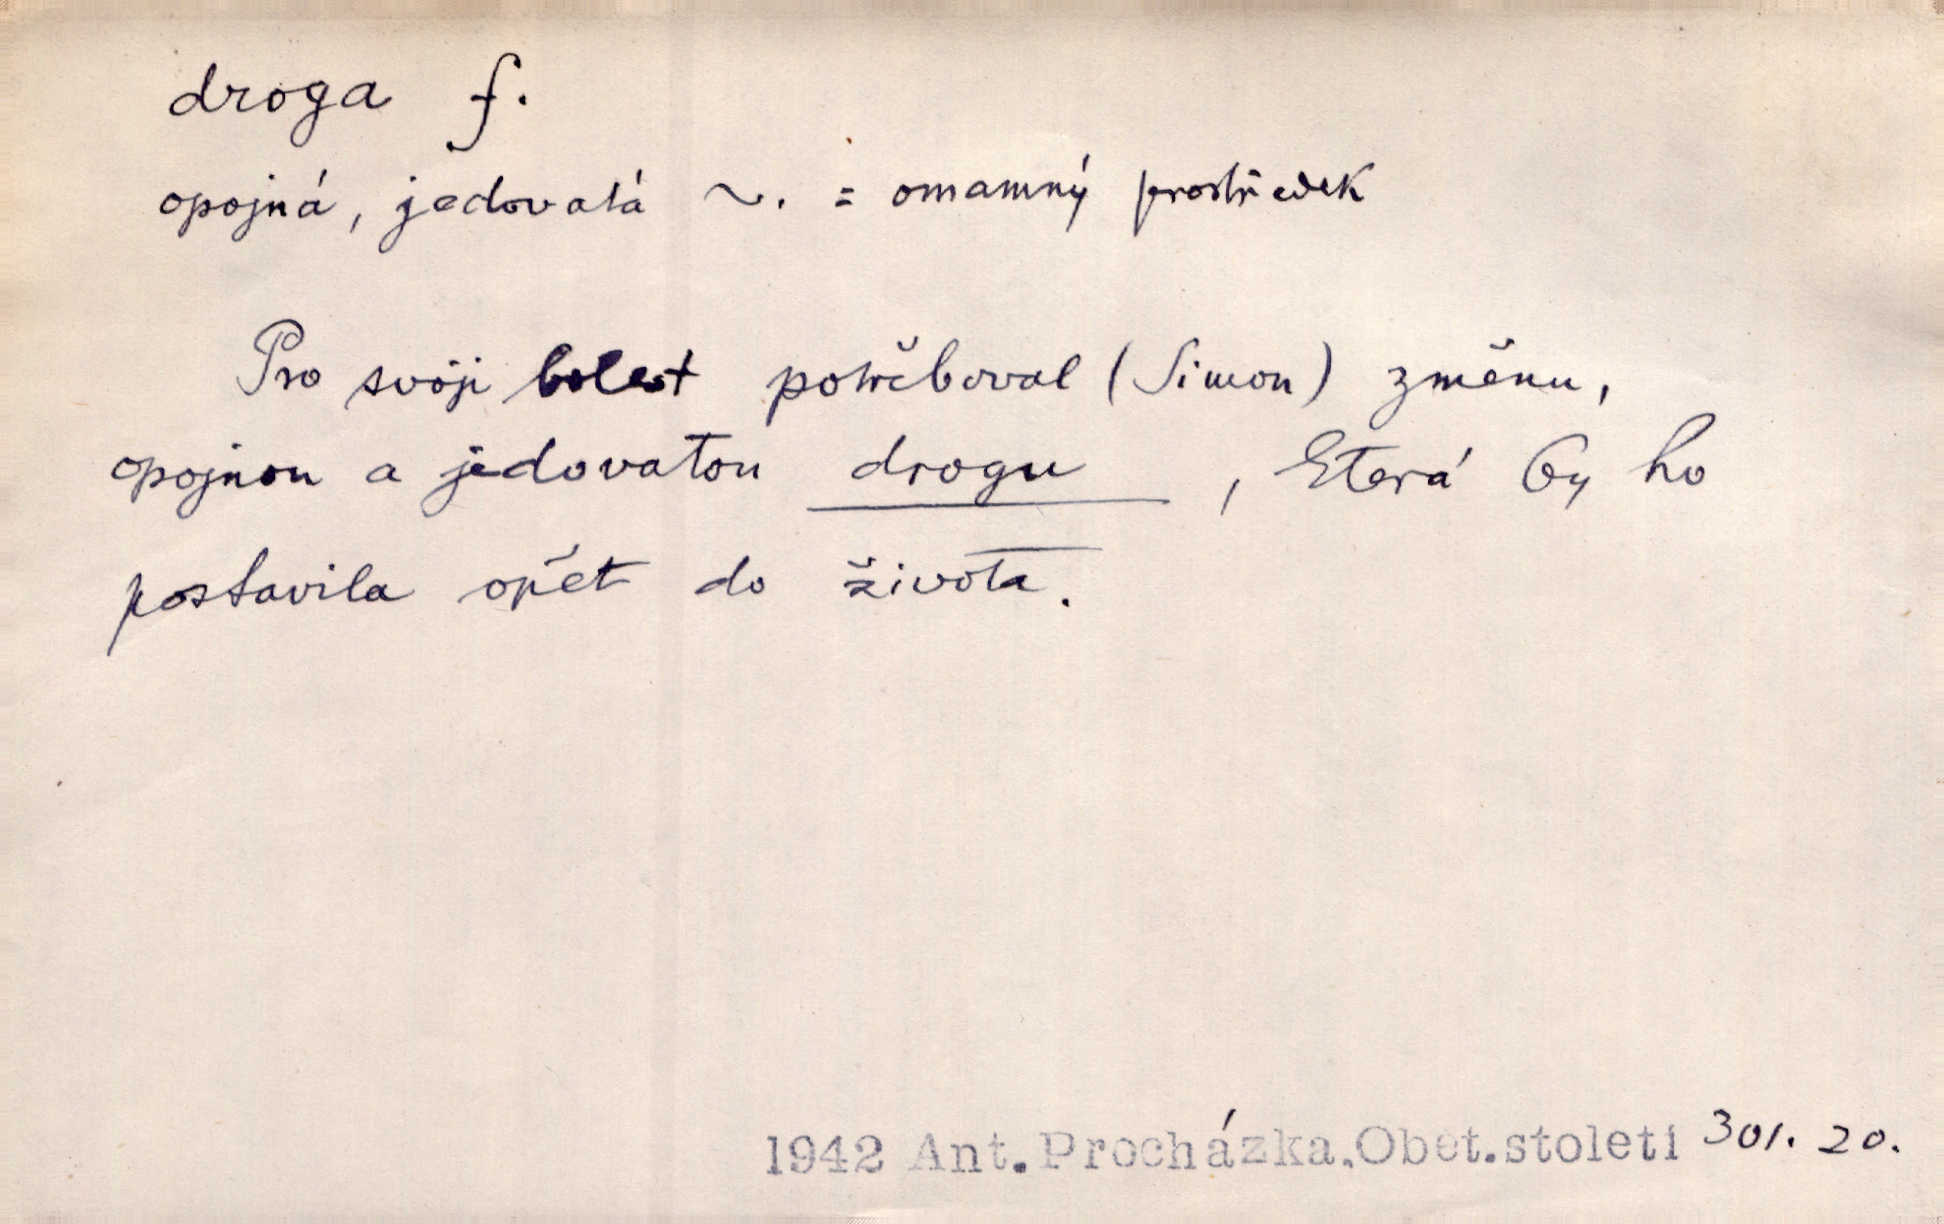 droga f.
opojná, jedovatá ~. = omamný prostředek
Pro svoji bolest potřeboval (Simon) změnu,
opojnou a jedovatou drogu, která by ho
postavila opět do života.
1942 Ant. Procházka. Obet. stoleti 301. 20.